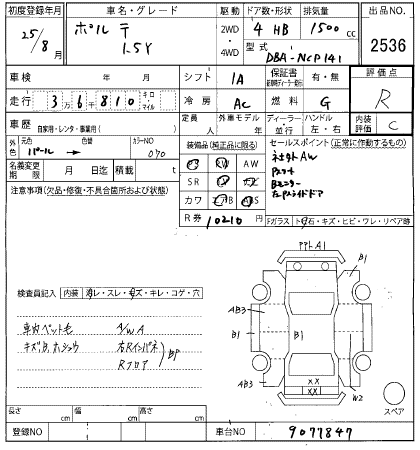 初度登録年月 車名・グレード 駆動 ドア数・形状 排気量 出品NO.
25/8月 ポルテ 1.5Y 2WD・4WD 4 HB 1500cc 2536
型式 DBA-NCP141
車検 年 月 シフト IA 保証書 有・無 評価点
走行 36810 キロ・マイル 冷房 AC 燃料 G R
車歴 自家用・レンタ・事業用( ) 定員 人 外車モデル 年 ディーラー 並行 ハンドル 左・右 内装評価 C
外色 元色 パール 色替 カラーNO 070
装備品(純正品に限る) セールスポイント(正常に作動するもの)
AW
SR
カワ AB ABS
ネオオトAW
Pスタート
Bモニター
左Pスライドドア
名義変更期限 月 日迄 積載 t
注意事項(欠品・修復・不具合箇所および状態)
R券 10210円
Fガラス トビ石・キズ・ヒビ・ワレ・リペア跡
アアトA1
検査員記入 内装 ヨゴレ・スレ・キズ・キレ・コゲ・穴
車内ペット毛 A/W A
キズ、B、ホシュウ 右Rインパネ
Rフロア
BP
B1
AB3
B1
B1
B1
AB3
XX
XX
W2
スペア
長さ cm 幅 cm 高さ cm
登録NO 車台NO 9077847